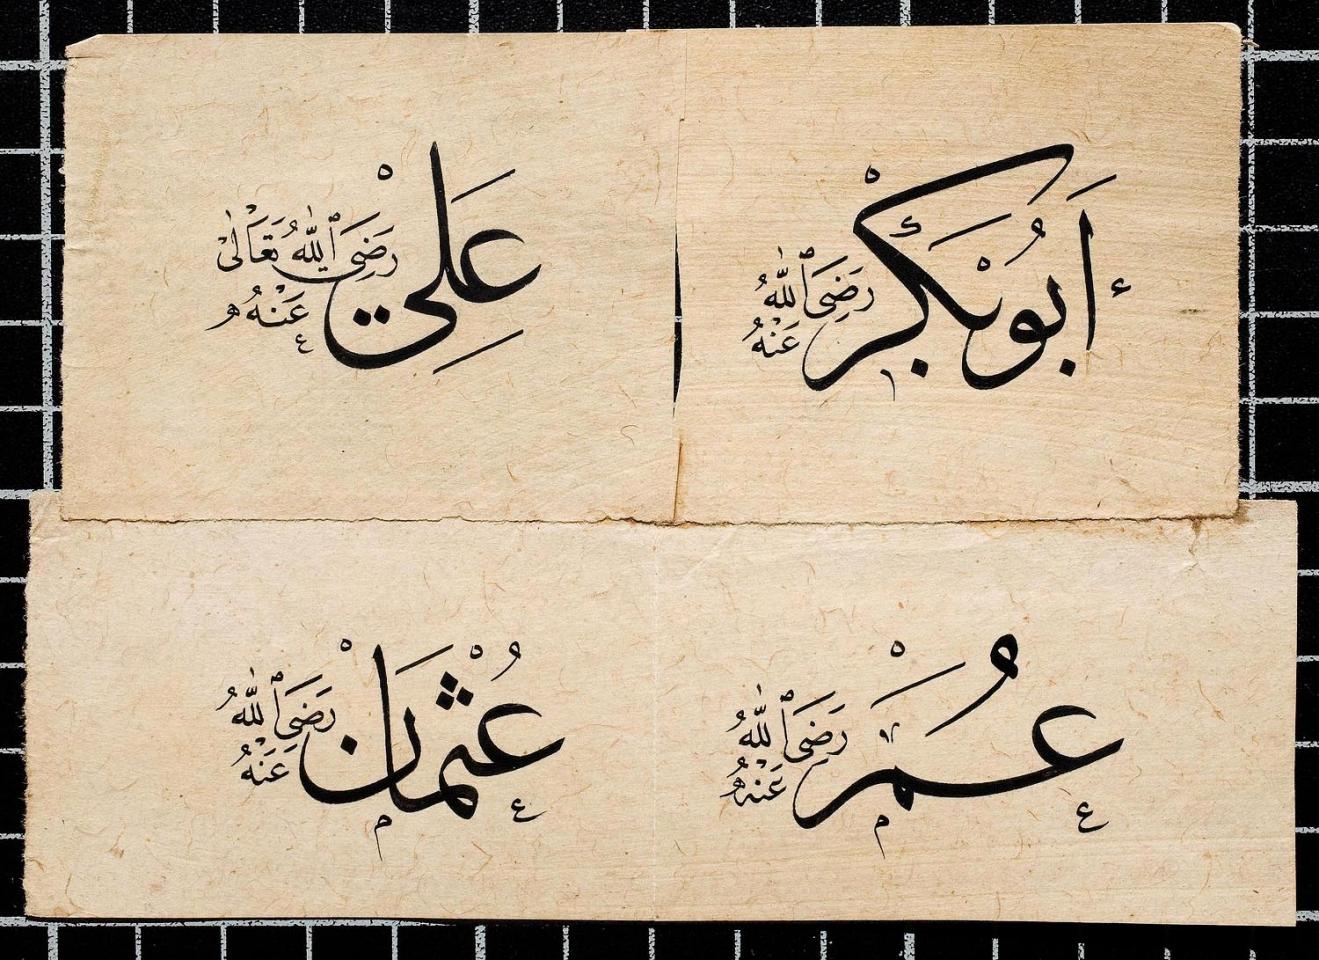 أَبُو بَكْرْ رَضِيَ ٱللّٰهُ عَنْهُ
عَلِيْ رَضِيَ ٱللّٰهُ تَعَالٰى عَنْهُ
عُمَرْ رَضِيَ ٱللّٰهُ عَنْهُ
عُثْمَانْ رَضِيَ ٱللّٰهُ عَنْهُ